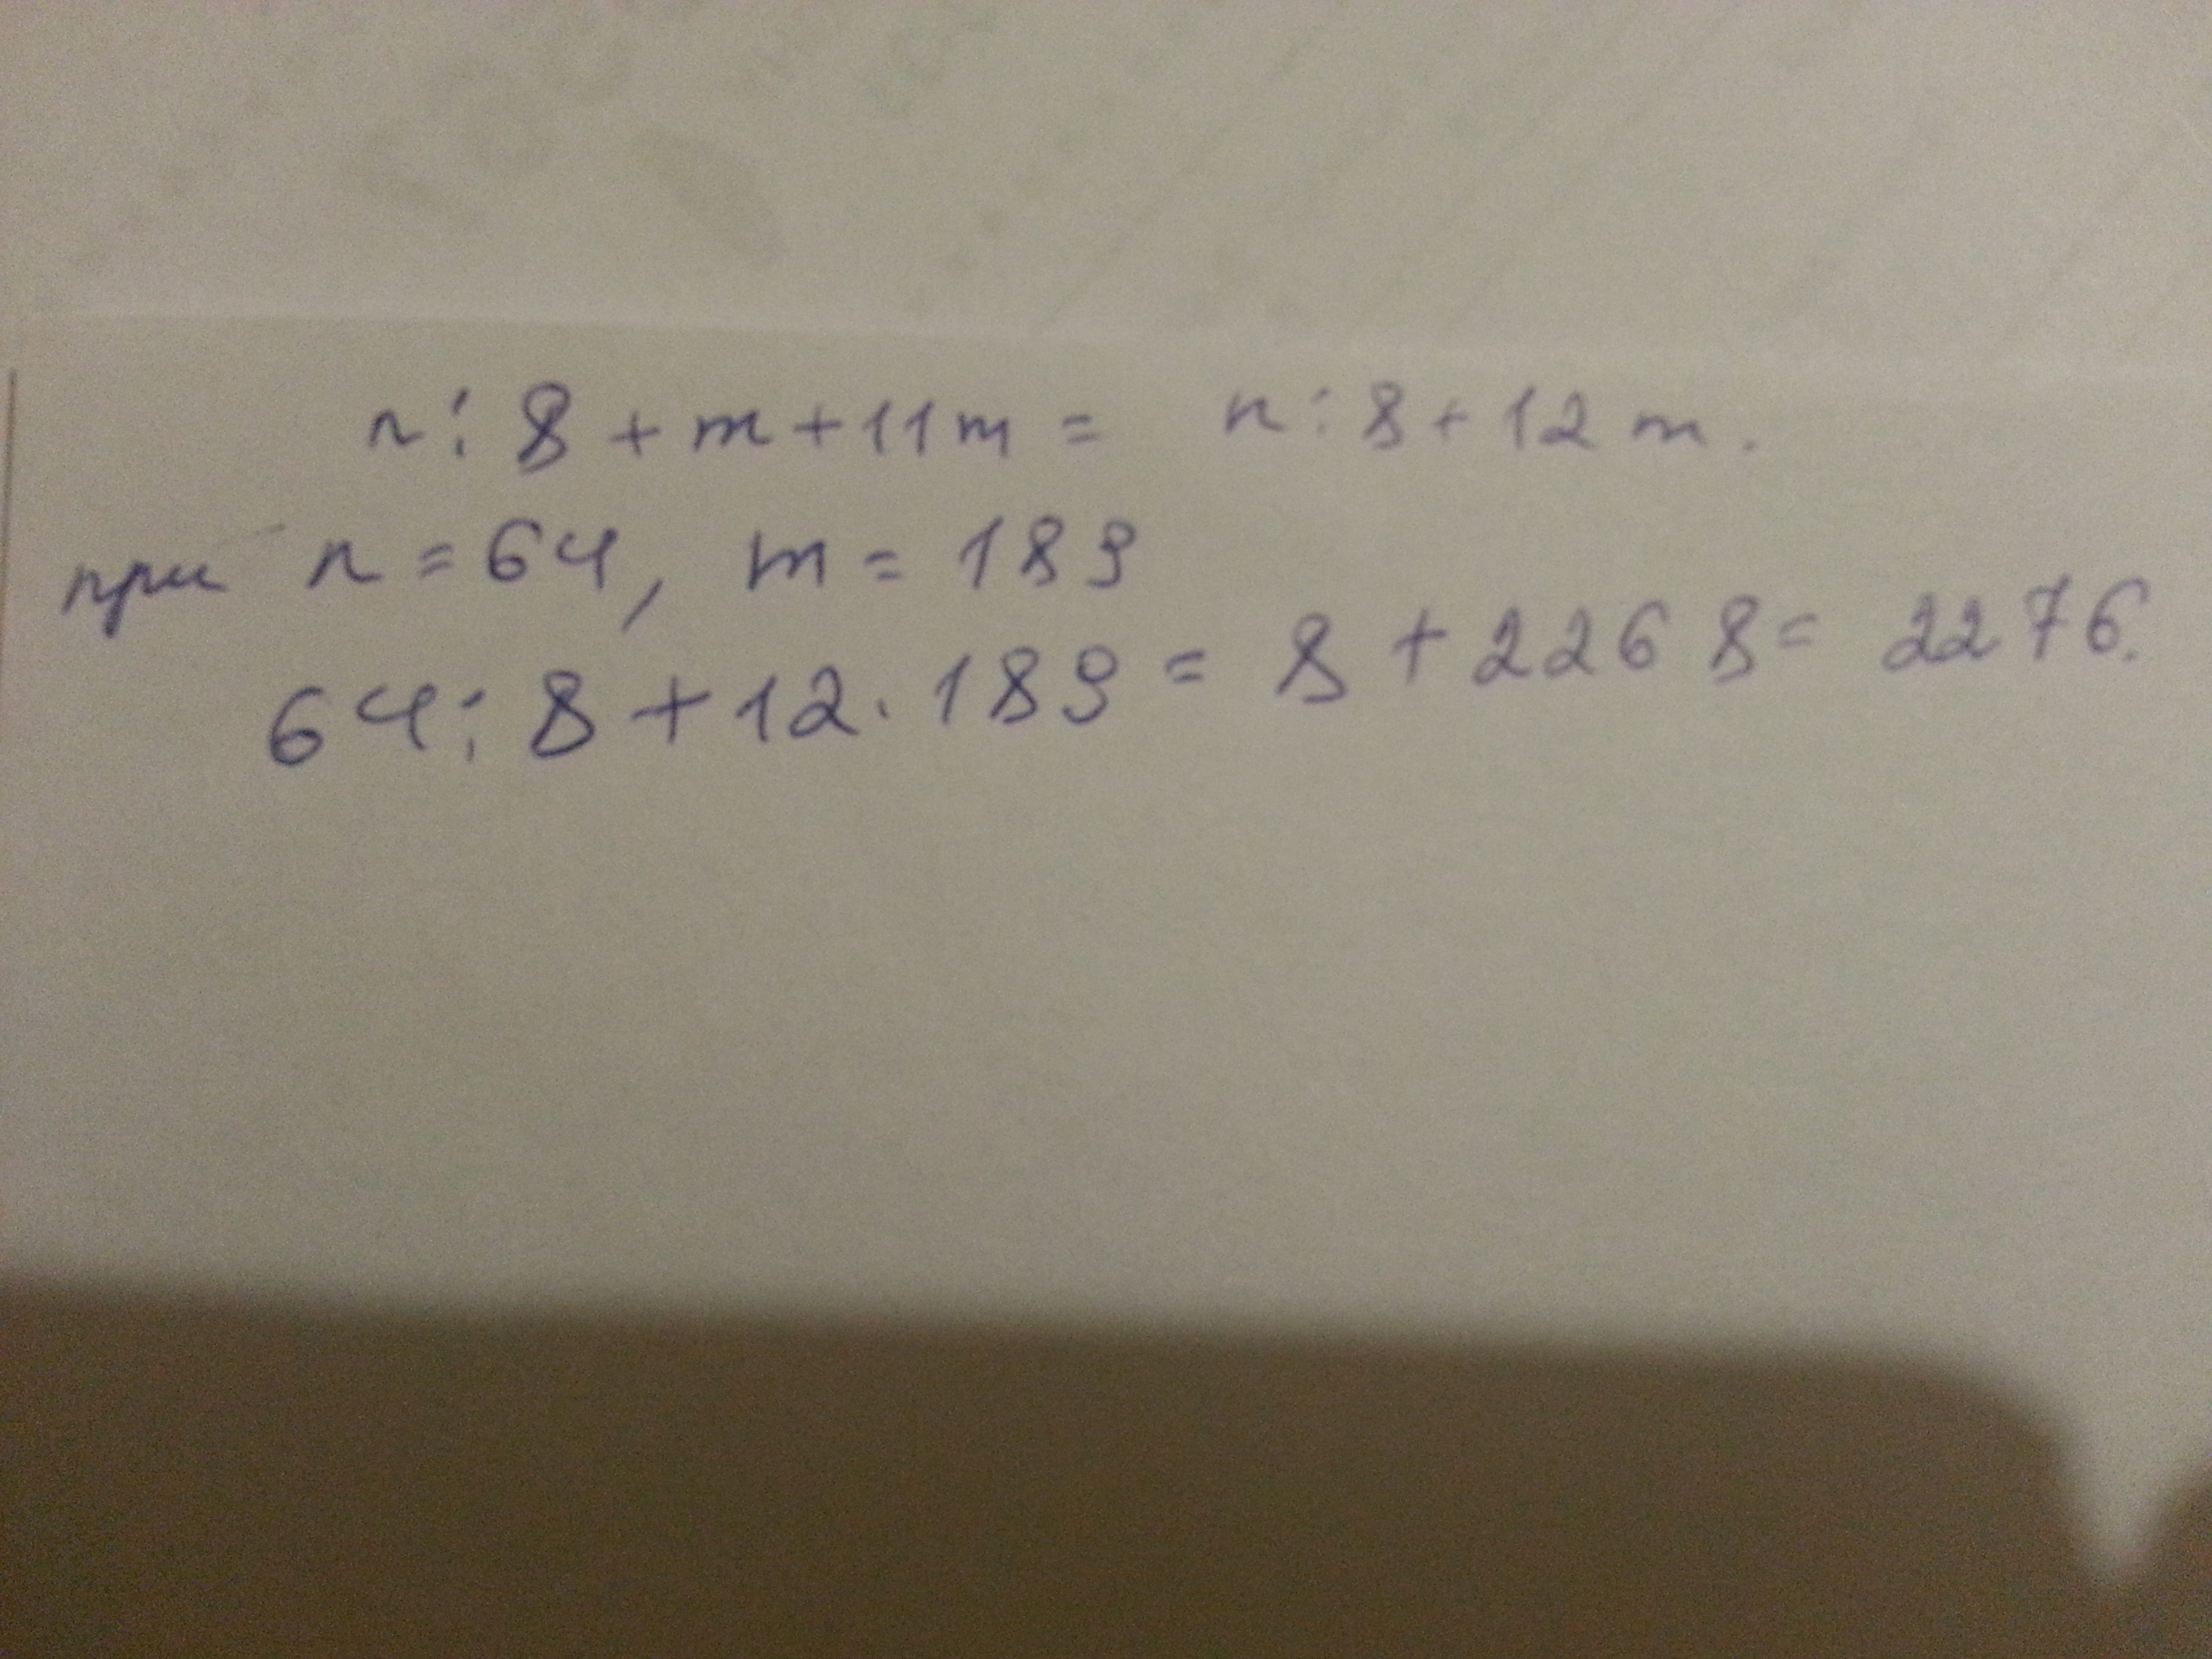 n : 8 + m + 11m = n : 8 + 12m.
при n = 64, m = 189
64 : 8 + 12 · 189 = 8 + 2268 = 2276.